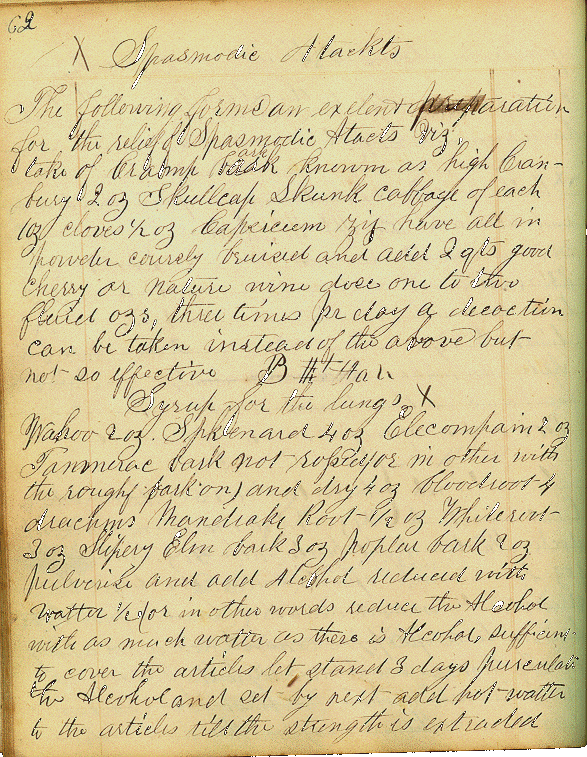 62
X Spasmodic Atackts
The following forms an exelent preparation
for the relief of Spasmodic Atacts viz,
take of Cramp bark known as high Cran-
bury 2 oz Skullcap Skunk cabbage of each
1oz cloves ½ oz Capsicum have all in
powder coursly bruised and add 2 qts good
cherry or nature wine dose one to two
fluid ozs, three times pr day a decoction
can be taken instead of the above but
not so effective B H
Syrup for the lungs X
Wahoo 2 oz. Spiknard 4 oz Elecompain 2 oz
Tammerac bark not (or in other with
the rough bark on) and dry 4 oz bloodroot 4
drachms Mandrake Root ½ oz Whiteroot
3 oz Slipery Elm bark 3 oz poplar bark 2 oz
pulverise and add Alcohol reduced with
watter ½ (or in other words reduce the Alcohol
with as much watter as there is Alcohol, sufficient
to cover the articles let stand 3 days
the Alcohol and set by next add hot watter
to the articles till the strength is extracted